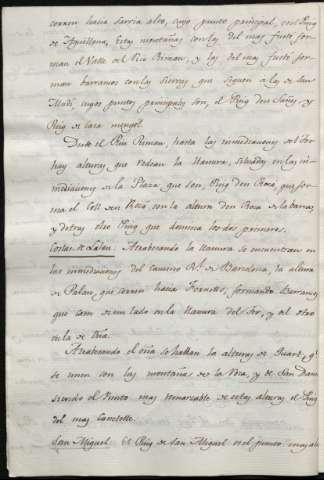 corren hacia Sarria alto, cuyo punto principal, es el Puig
de Aguillona, Estas montañas con las del mas fusté for-
man el Valle del Rio Riman, y las del mas fusté for-
man barrancos con las Sierras que siguen a la de San
Madí, cuyos puntos principales son, el Puig den Suñer, y
Puig de casa
Desde el Rio Riman, hasta las inmediaciones del Ter
hay alturas que rodean la llanura, situadas en las in-
mediaciones de la Plaza que son, Puig den Rocá, que for-
ma el Coll den Rocá con la altura den Roca de la barca,
y detras otro Puig que domina los dos primeros.
Costas de Palau. Atrabesando la llanura se encuentran en
las inmediaciones del camino Rl. de Barcelona, la altura
de Palau, que corren hacia Fornells, formando Barrancos
que caen de un lado en la llanura del Ter, y del otro
en la de Oña.
Atrabesando el Oña se hallan las alturas de Quart, qe.
se unen con las montañas de la Vira, y de San Dam
siendo el Punto mas remarcable de estas alturas el Puig
del mas
San Miguel. El Puig de San Miguel es el punto mas al